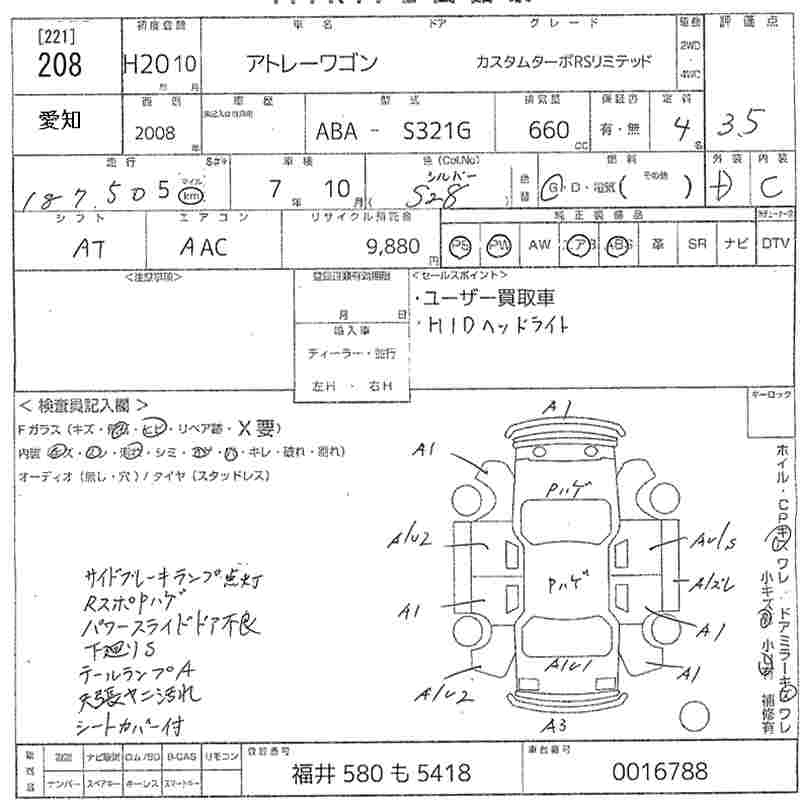 初度登録 車名 ドア グレード 駆動 評価点
[221]
208 H20 10 アトレーワゴン カスタムターボRSリミテッド 2WD・4WD
年 月
愛知 西暦 車歴 型式 排気量 保証書 定員
2008年 ABA - S321G 660 CC 有・無 4名 3.5
走行 車検 色(Col.No) 燃料 その他 外装 内装
187,505 マイル km 7年 10月 シルバー S28 G・D・電気( ) D C
シフト エアコン リサイクル預託金 純正装備品
AT AAC 9,880円 PS PW AW エアB ABS 革 SR ナビ DTV
<注意事項> 登録書類有効期限 <セールスポイント>
月 日 ・ユーザー買取車
輸入車 ・HIDヘッドライト
ディーラー・並行
左H ・ 右H
<検査員記入欄> キーロック
Fガラス(キズ・飛石・ヒビ・リペア跡・X要)
内装(キズ・スレ・・シミ・コゲ・穴・キレ・破れ・割れ)
オーディオ(無し・穴)/タイヤ(スタッドレス)
A1
A1
Pハゲ
A1U2 AU1S
Pハゲ A1ズレ
A1 A1
A1U1
A1U2 A1
A3
サイドブレーキランプ点灯
RスポPハゲ
パワースライドドア不良
下廻りS
テールランプA
天張ヤニ汚れ
シートカバー付
ホイル・CPキズワレ ドアミラーキズワレ
小キズ有 小凹有 補修有
ナビ取説 ロム/SD B-CAS リモコン 登録番号 車台番号
ナンバー スペアキー キーレス スマートキー 福井 580 も 5418 0016788